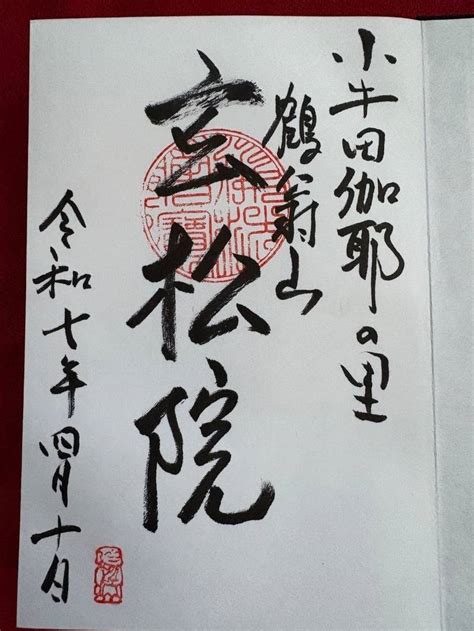 小牛田伽耶の里
鶴翁山
玄松院
令和七年四月十日